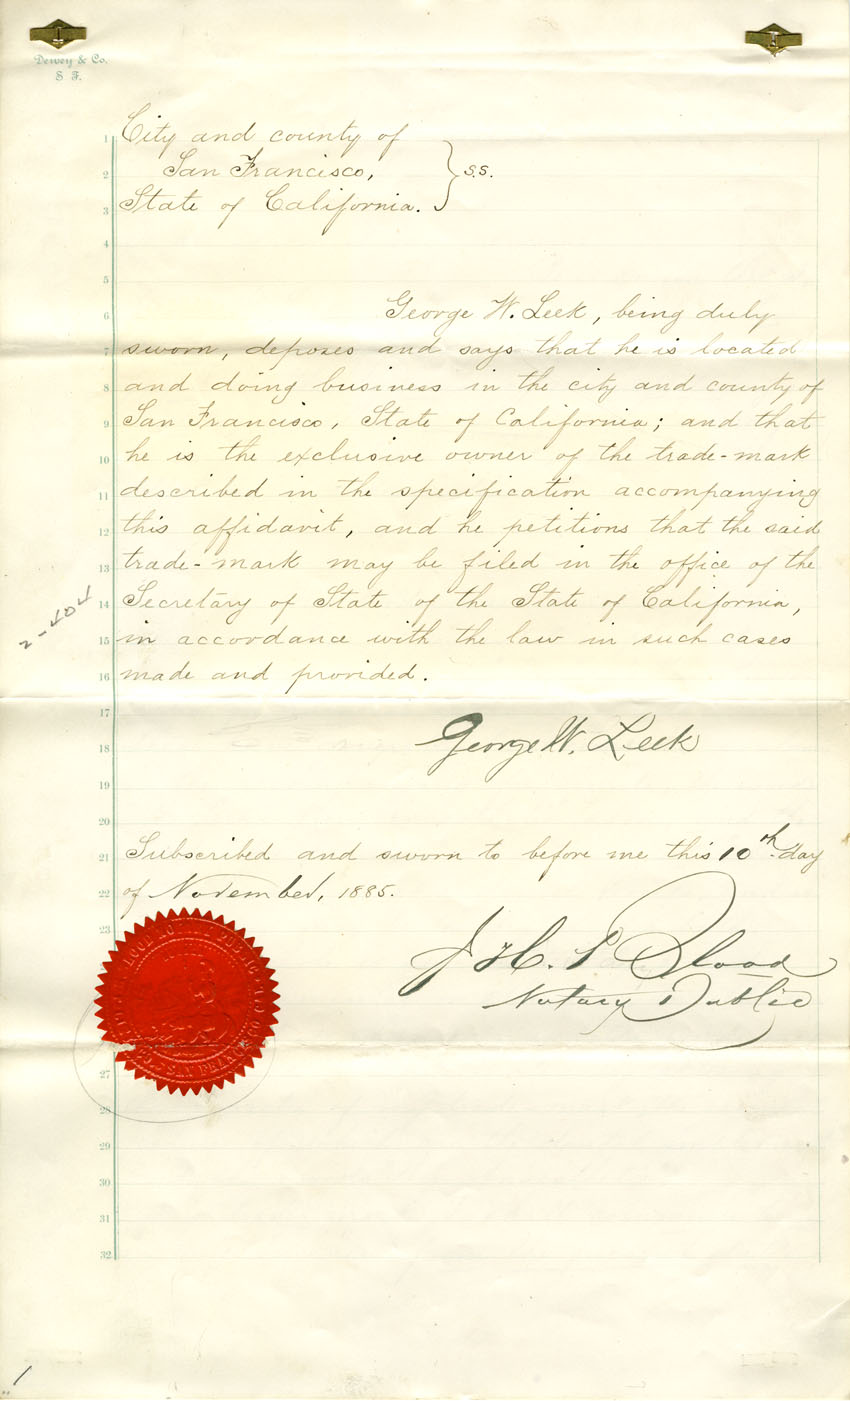 Dewey & Co.
S F.
1 City and county of
2 San Francisco, } s.s.
3 State of California.
4
5
6 George W. Leek, being duly
7 sworn, deposes and says that he is located
8 and doing business in the city and county of
9 San Francisco, State of California; and that
10 he is the exclusive owner of the trade-mark
11 described in the specification accompanying
12 this affidavit, and he petitions that the said
13 trade-mark may be filed in the office of the
14 Secretary of State of the State of California,
2-404
15 in accordance with the law in such cases
16 made and provided.
17
18 George W. Leek
19
20
21 Subscribed and sworn to before me this 10th day
22 of November, 1885.
23
J. H. Blood
Notary Public
SAN FRANCISCO
27
28
29
30
31
32
1